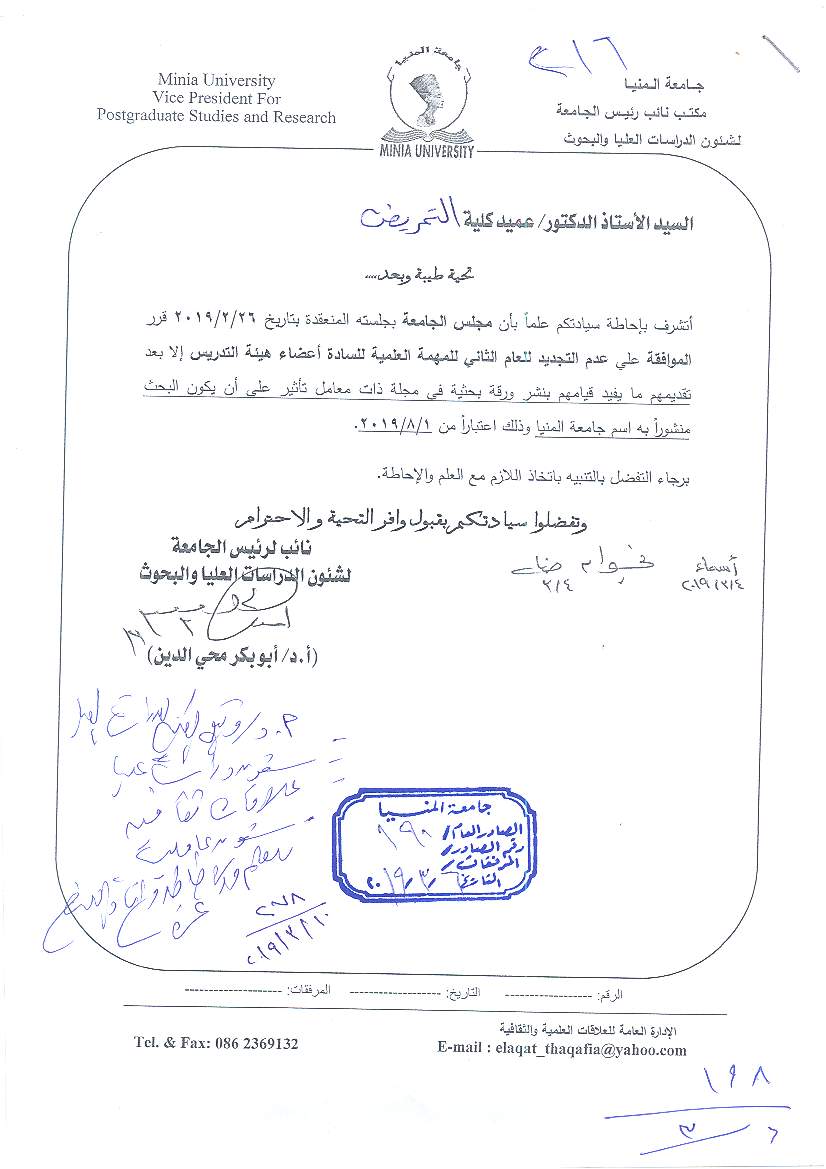 ٣١٦
جامعة المنيا
Minia University
Vice President For
Postgraduate Studies and Research
MINIA UNIVERSITY
جامعة المنيا
مكتب نائب رئيس الجامعة
لشئون الدراسات العليا والبحوث
السيد الأستاذ الدكتور/ عميد كلية التمريض
تحية طيبة وبعد....
أتشرف بإحاطة سيادتكم علماً بأن مجلس الجامعة بجلسته المنعقدة بتاريخ ٢٠١٩/٢/٢٦ قرر
الموافقة علي عدم التجديد للعام الثاني للمهمة العلمية للسادة أعضاء هيئة التدريس إلا بعد
تقديمهم ما يفيد قيامهم بنشر ورقة بحثية في مجلة ذات معامل تأثير على أن يكون البحث
منشوراً به اسم جامعة المنيا وذلك اعتباراً من ٢٠١٩/٨/١.
برجاء التفضل بالتنبيه باتخاذ اللازم مع العلم والإحاطة.
وتفضلوا سيادتكم بقبول وافر التحية والاحترام
نائب لرئيس الجامعة
لشئون الدراسات العليا والبحوث
أسماء
٢٠١٩/٣/٤
٣/٤
(أ.د/ أبوبكر محي الدين)
علاقات ثقافية
جامعة المنيا
الصادر العام/
رقم الصادر/
المرفقات/
التاريخ
٢٠١٩/٣/١٠
الرقم: ------------------- التاريخ: -------------------- المرفقات: ---------------------
الإدارة العامة للعلاقات العلمية والثقافية
Tel. & Fax: 086 2369132
E-mail : elaqat_thaqafia@yahoo.com
١٩٨
٣/٦